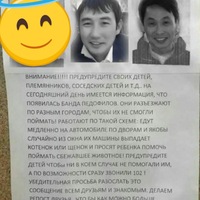 ВНИМАНИЕ!!!!! ПРЕДУПРЕДИТЕ СВОИХ ДЕТЕЙ,
ПЛЕМЯННИКОВ, СОСЕДСКИХ ДЕТЕЙ И Т.Д., НА
СЕГОДНЯШНИЙ ДЕНЬ ИМЕЕТСЯ ИНФОРМАЦИЯ, ЧТО
ПОЯВИЛАСЬ БАНДА ПЕДОФИЛОВ. ОНИ РАЗЪЕЗЖАЮТ
ПО РАЗНЫМ ГОРОДАМ, ЧТОБЫ ИХ НЕ СМОГЛИ
ПОЙМАТЬ! РАБОТАЮТ ПО ТАКОЙ СХЕМЕ: ЕДУТ
МЕДЛЕННО НА АВТОМОБИЛЕ ПО ДВОРАМ И ЯКОБЫ
СЛУЧАЙНО ИЗ ОКНА ИХ МАШИНЫ ВЫПАДАЕТ
КОТЕНОК ИЛИ ЩЕНОК И ПРОСЯТ РЕБЕНКА ПОМОЧЬ
ПОЙМАТЬ СБЕЖАВШЕЕ ЖИВОТНОЕ! ПРЕДУПРЕДИТЕ
ДЕТЕЙ ЧТОБЫ НИ В КОЕМ СЛУЧАЕ НЕ ПОМОГАЛИ ИМ,
А ПО ВОЗМОЖНОСТИ СРАЗУ ЗВОНИЛИ 102 !
УБЕДИТЕЛЬНАЯ ПРОСЬБА РАЗОСЛАТЬ ЭТО
СООБЩЕНИЕ ВСЕМ ДРУЗЬЯМ И ЗНАКОМЫМ. ДЕЛАЕМ
РЕПОСТ ДРУЗЬЯ, ЧТО БЫ КАК МОЖНО БОЛЬШЕ